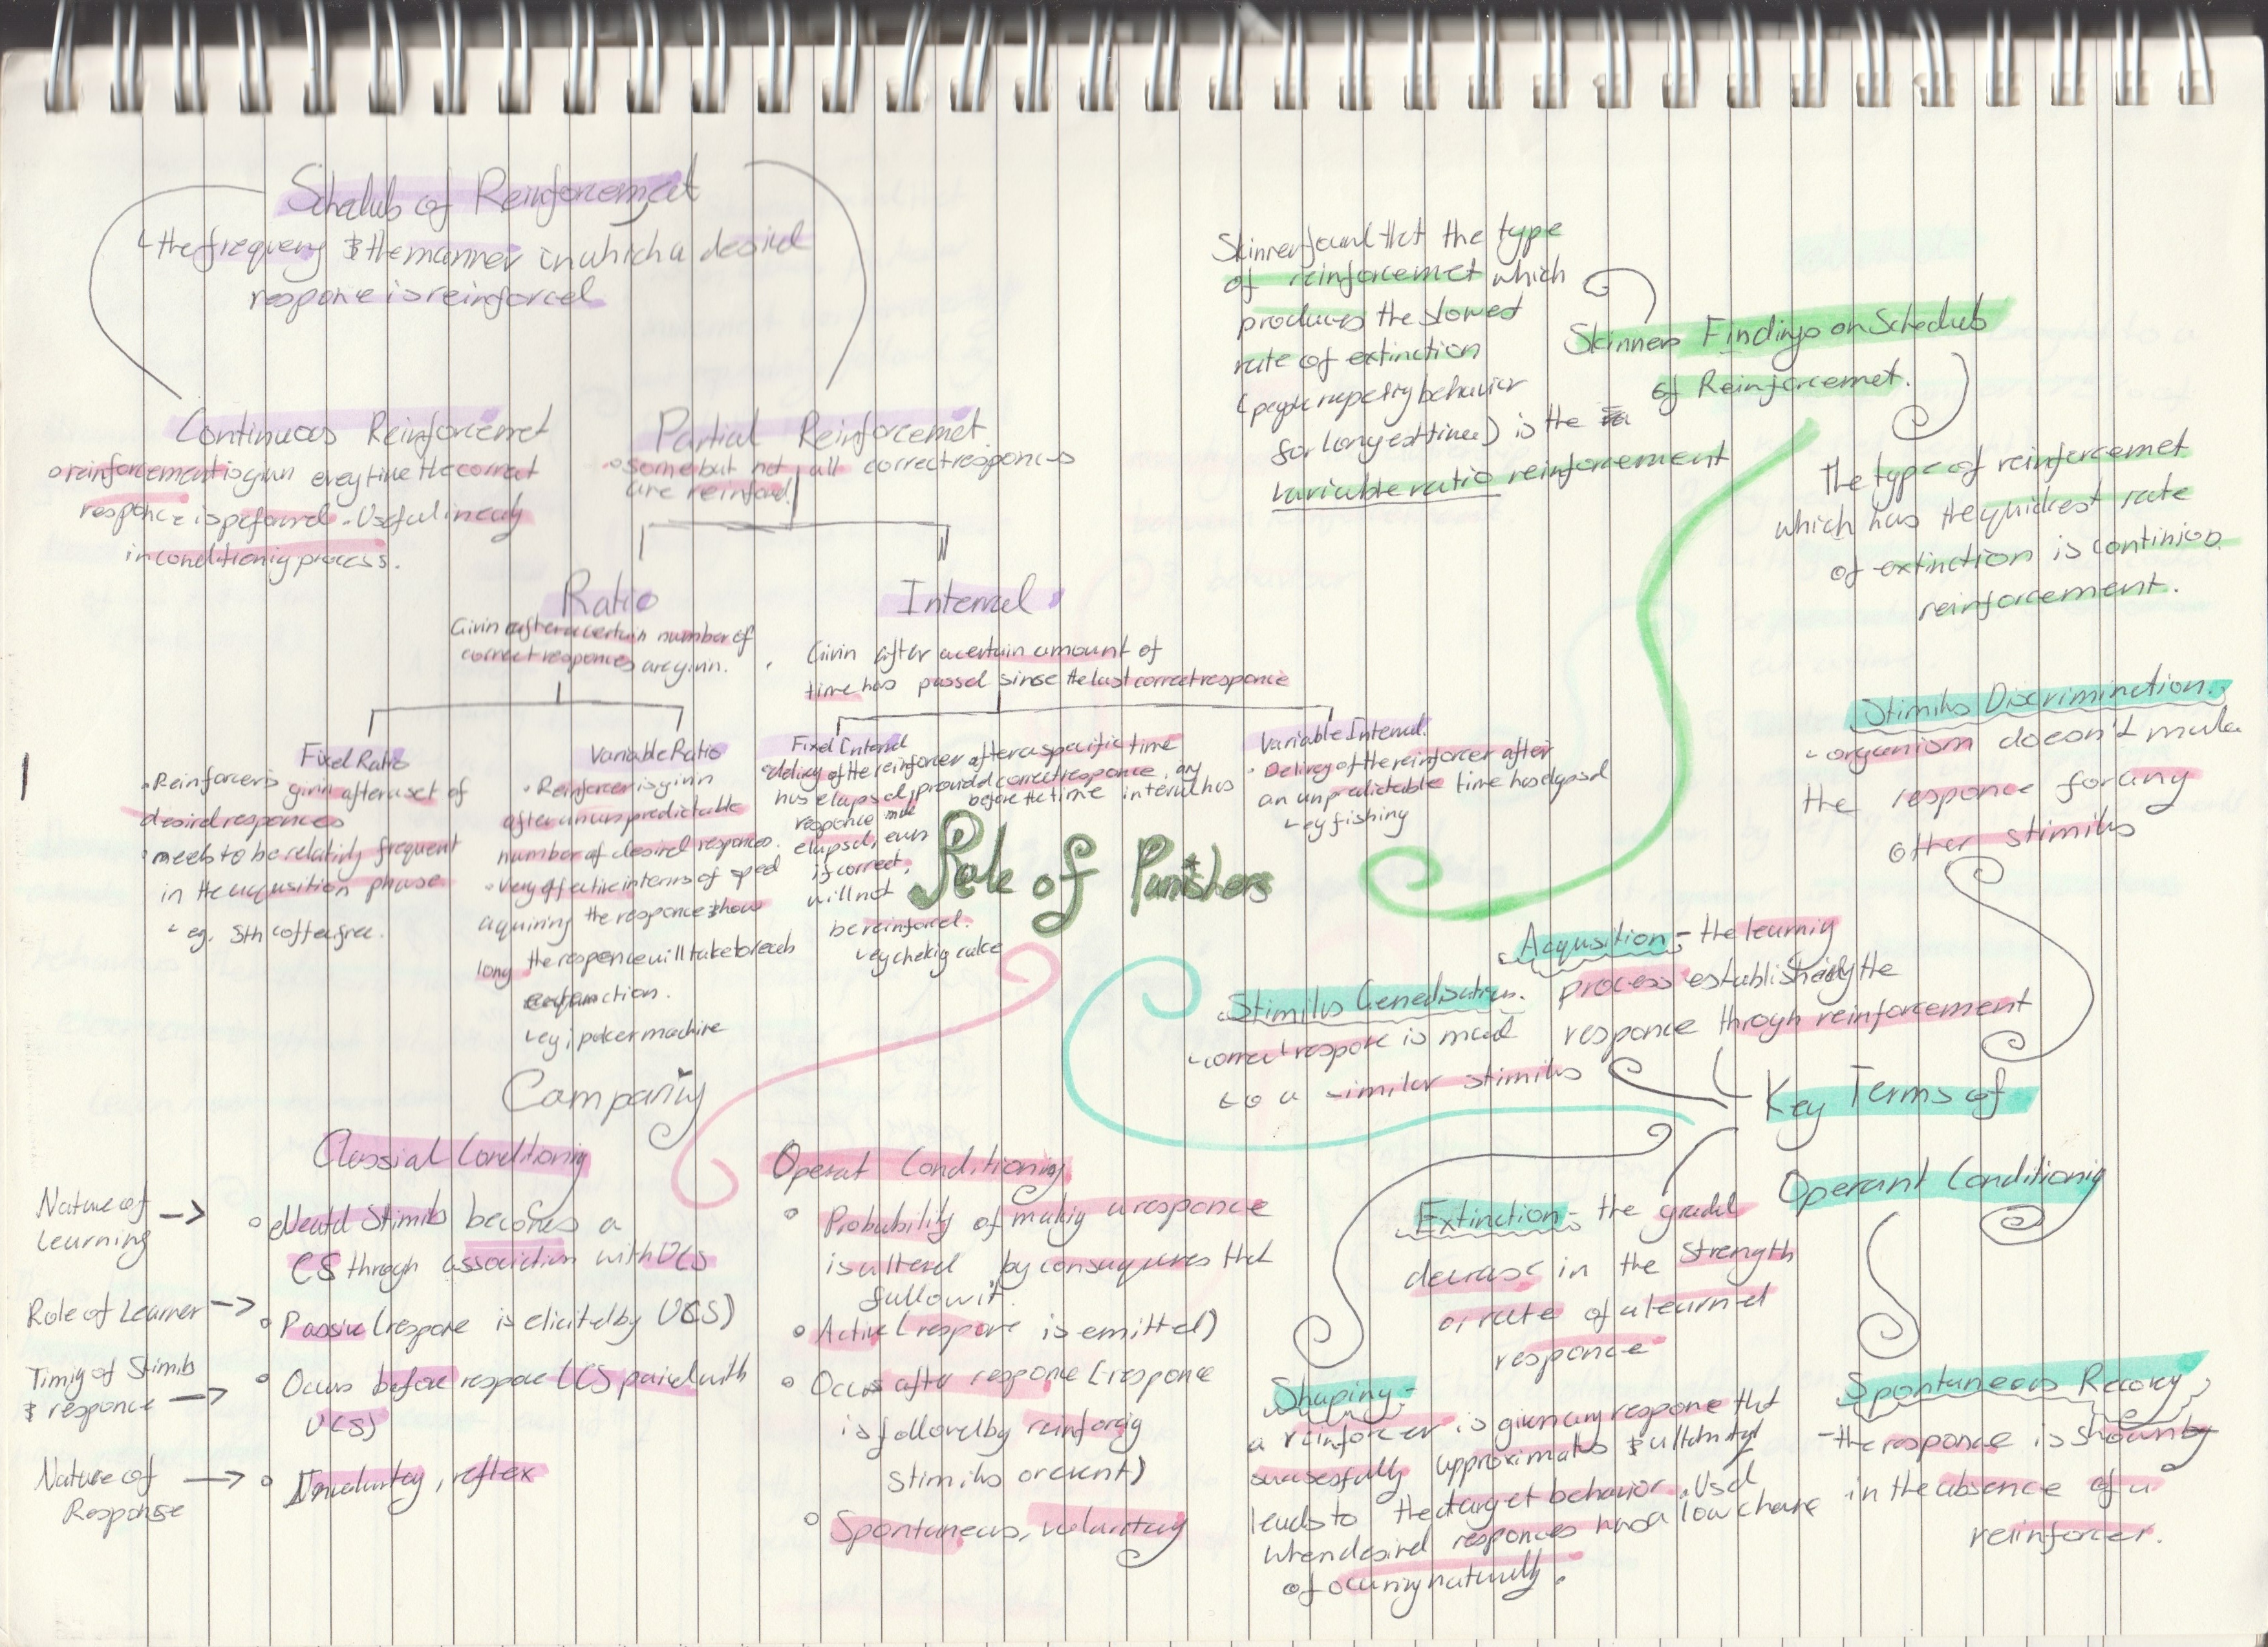 Schedule of Reinforcemet
the frequeny & the manner in which a desired
response is reinforced
Continuous Reinforcemet
reinforcement is given every time the correct
response is peformed. Useful in early
in conditionig process.
Partial Reinforcemet
some but not all correct responces
are reinforced.
Ratio
Givin after a certain number of
correct responces are givin.
Interval
Givin after a certain amount of
time has passed sinse the last correct responce
Fixed Ratio
Reinforcer is givin after a set of
desired responces
needs to be relativly frequent
in the acqusition phase
eg. 5th coffee free.
Variable Ratio
Reinforcer is givin
after an unpredictable
number of desired responces.
Very effective interms of speed
aquiring the responce & how
long the responce will take to reach
extinction.
eg; poker machine
Fixed Interval
delivery of the reinforcer after a specific time
has elapsed, provided correct responce, any
responce made before the time interval has
elapsed, even
if correct,
will not
be reinforced.
eg cheking cake
Variable Interval.
Delivery of the reinforcer after
an unpredictable time has elapsed
eg fishing
Skinner found that the type
of reinforcemet which
produces the slowest
rate of extinction
(people repeting behavior
for longest time) is the
variable ratio reinforcement
Skinners Findings on Schedules
of Reinforcemet.
The type of reinforcemet
which has the quickest rate
of extinction is continios
reinforcement.
Role of Punishers
Stimilus Discriminction.
organism doesn't make
the responce for any
other stimilus
Acqusition - the learnig
process establishing the
responce throgh reinforcement
Stimilus Generalisation.
correct response is made
to a similar stimilus
Key Terms of
Operant Conditionig
Extinction - the gradul
decrase in the strength
or rate of a learned
responce
Shaping -
a reinforcer is given any response that
sucsesfully approximates & ultimatyl
leads to the target behavior. Used
when desired responces has a low chance
of occuring naturally.
Spontaneous Recovry
- the responce is shown by
in the absence of a
reinforcer.
Comparing
Classial Conditionig
Operat Conditioning
Nature of
Learning
Neutral Stimilus becomes a
CS throgh association with UCS
Probability of makig a responce
is altered by consequnces that
follow it.
Role of Learner
Passive (respone is elicited by UCS)
Active (respone is emitted)
Timig of Stimilus
& responce
Occurs before respone (CS paired with
UCS)
Occurs after responce (responce
is followed by reinforcig
stimilus or event)
Nature of
Response
Involuntary, reflex
Spontaneous, voluntary